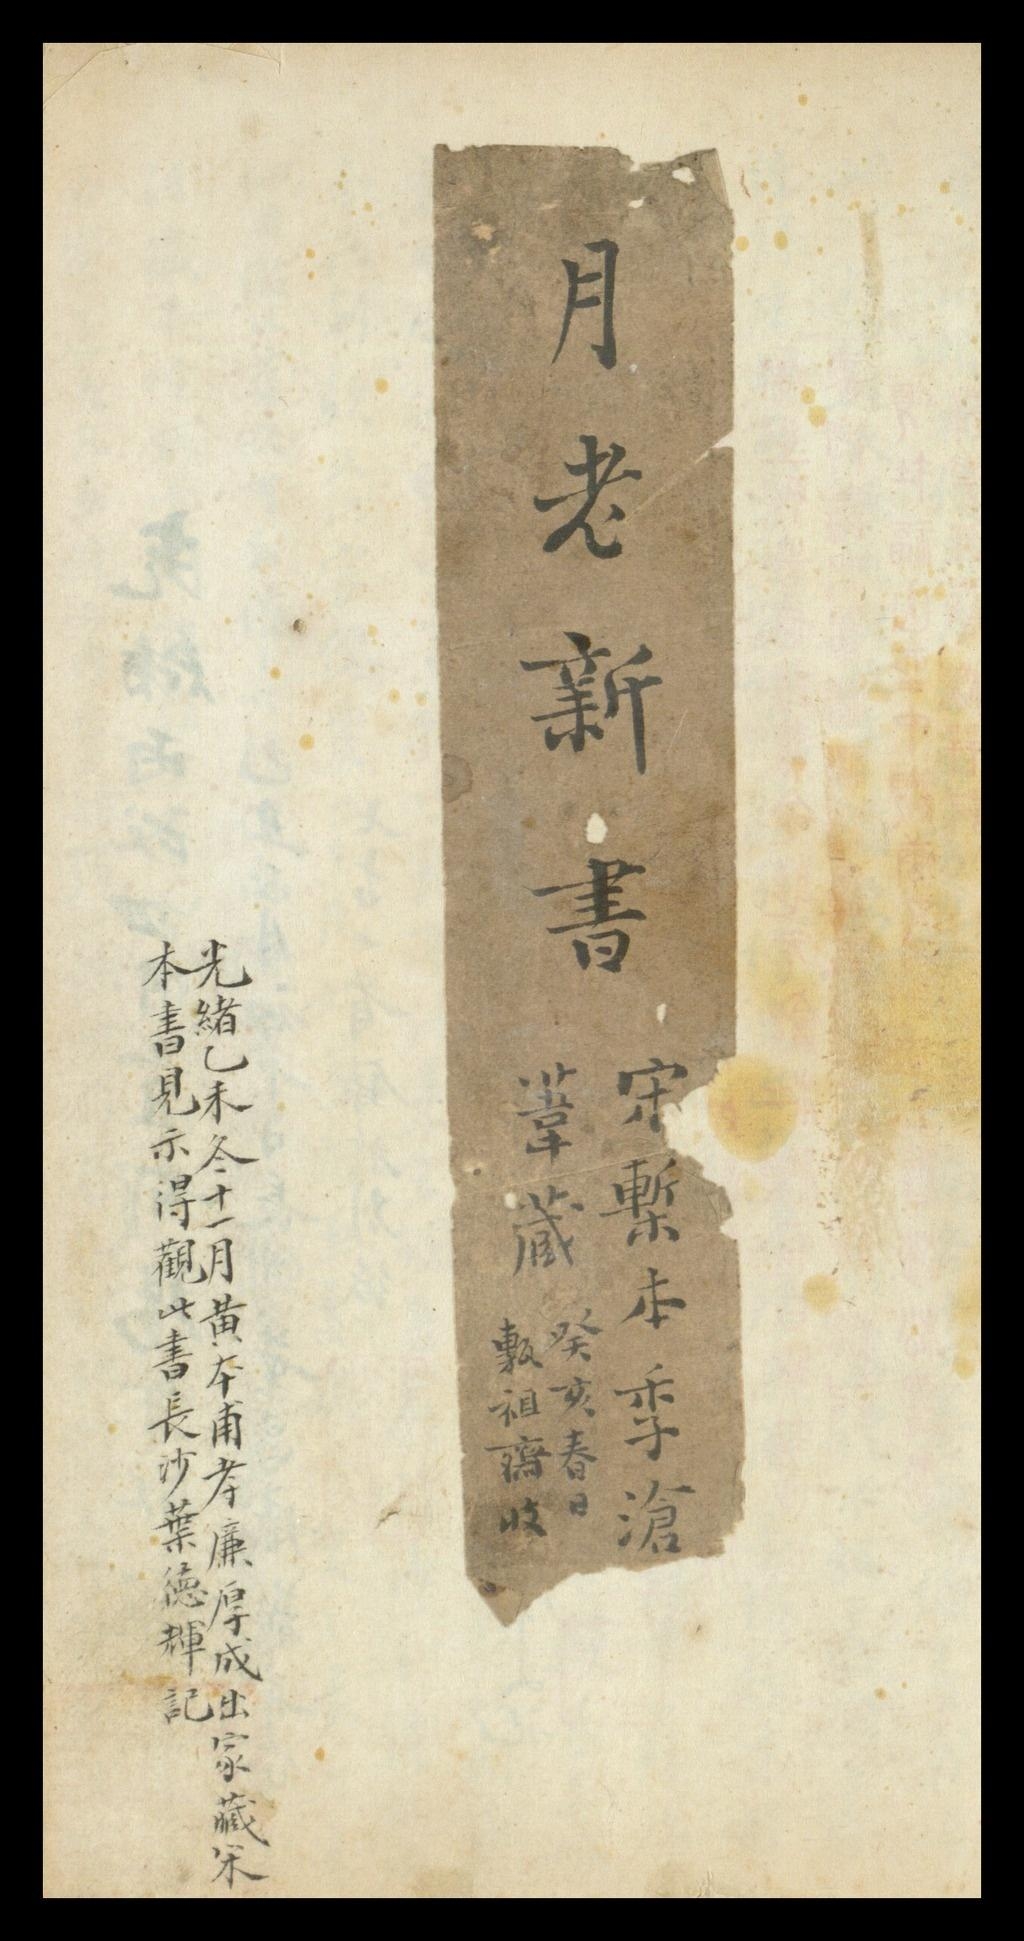 月老新書
宋槧本季滄
葦藏
癸亥春日
敷祖齋收
光緒乙未冬十一月黃本甫孝廉厚成出家藏宋
本書見示得觀此書長沙葉德輝記